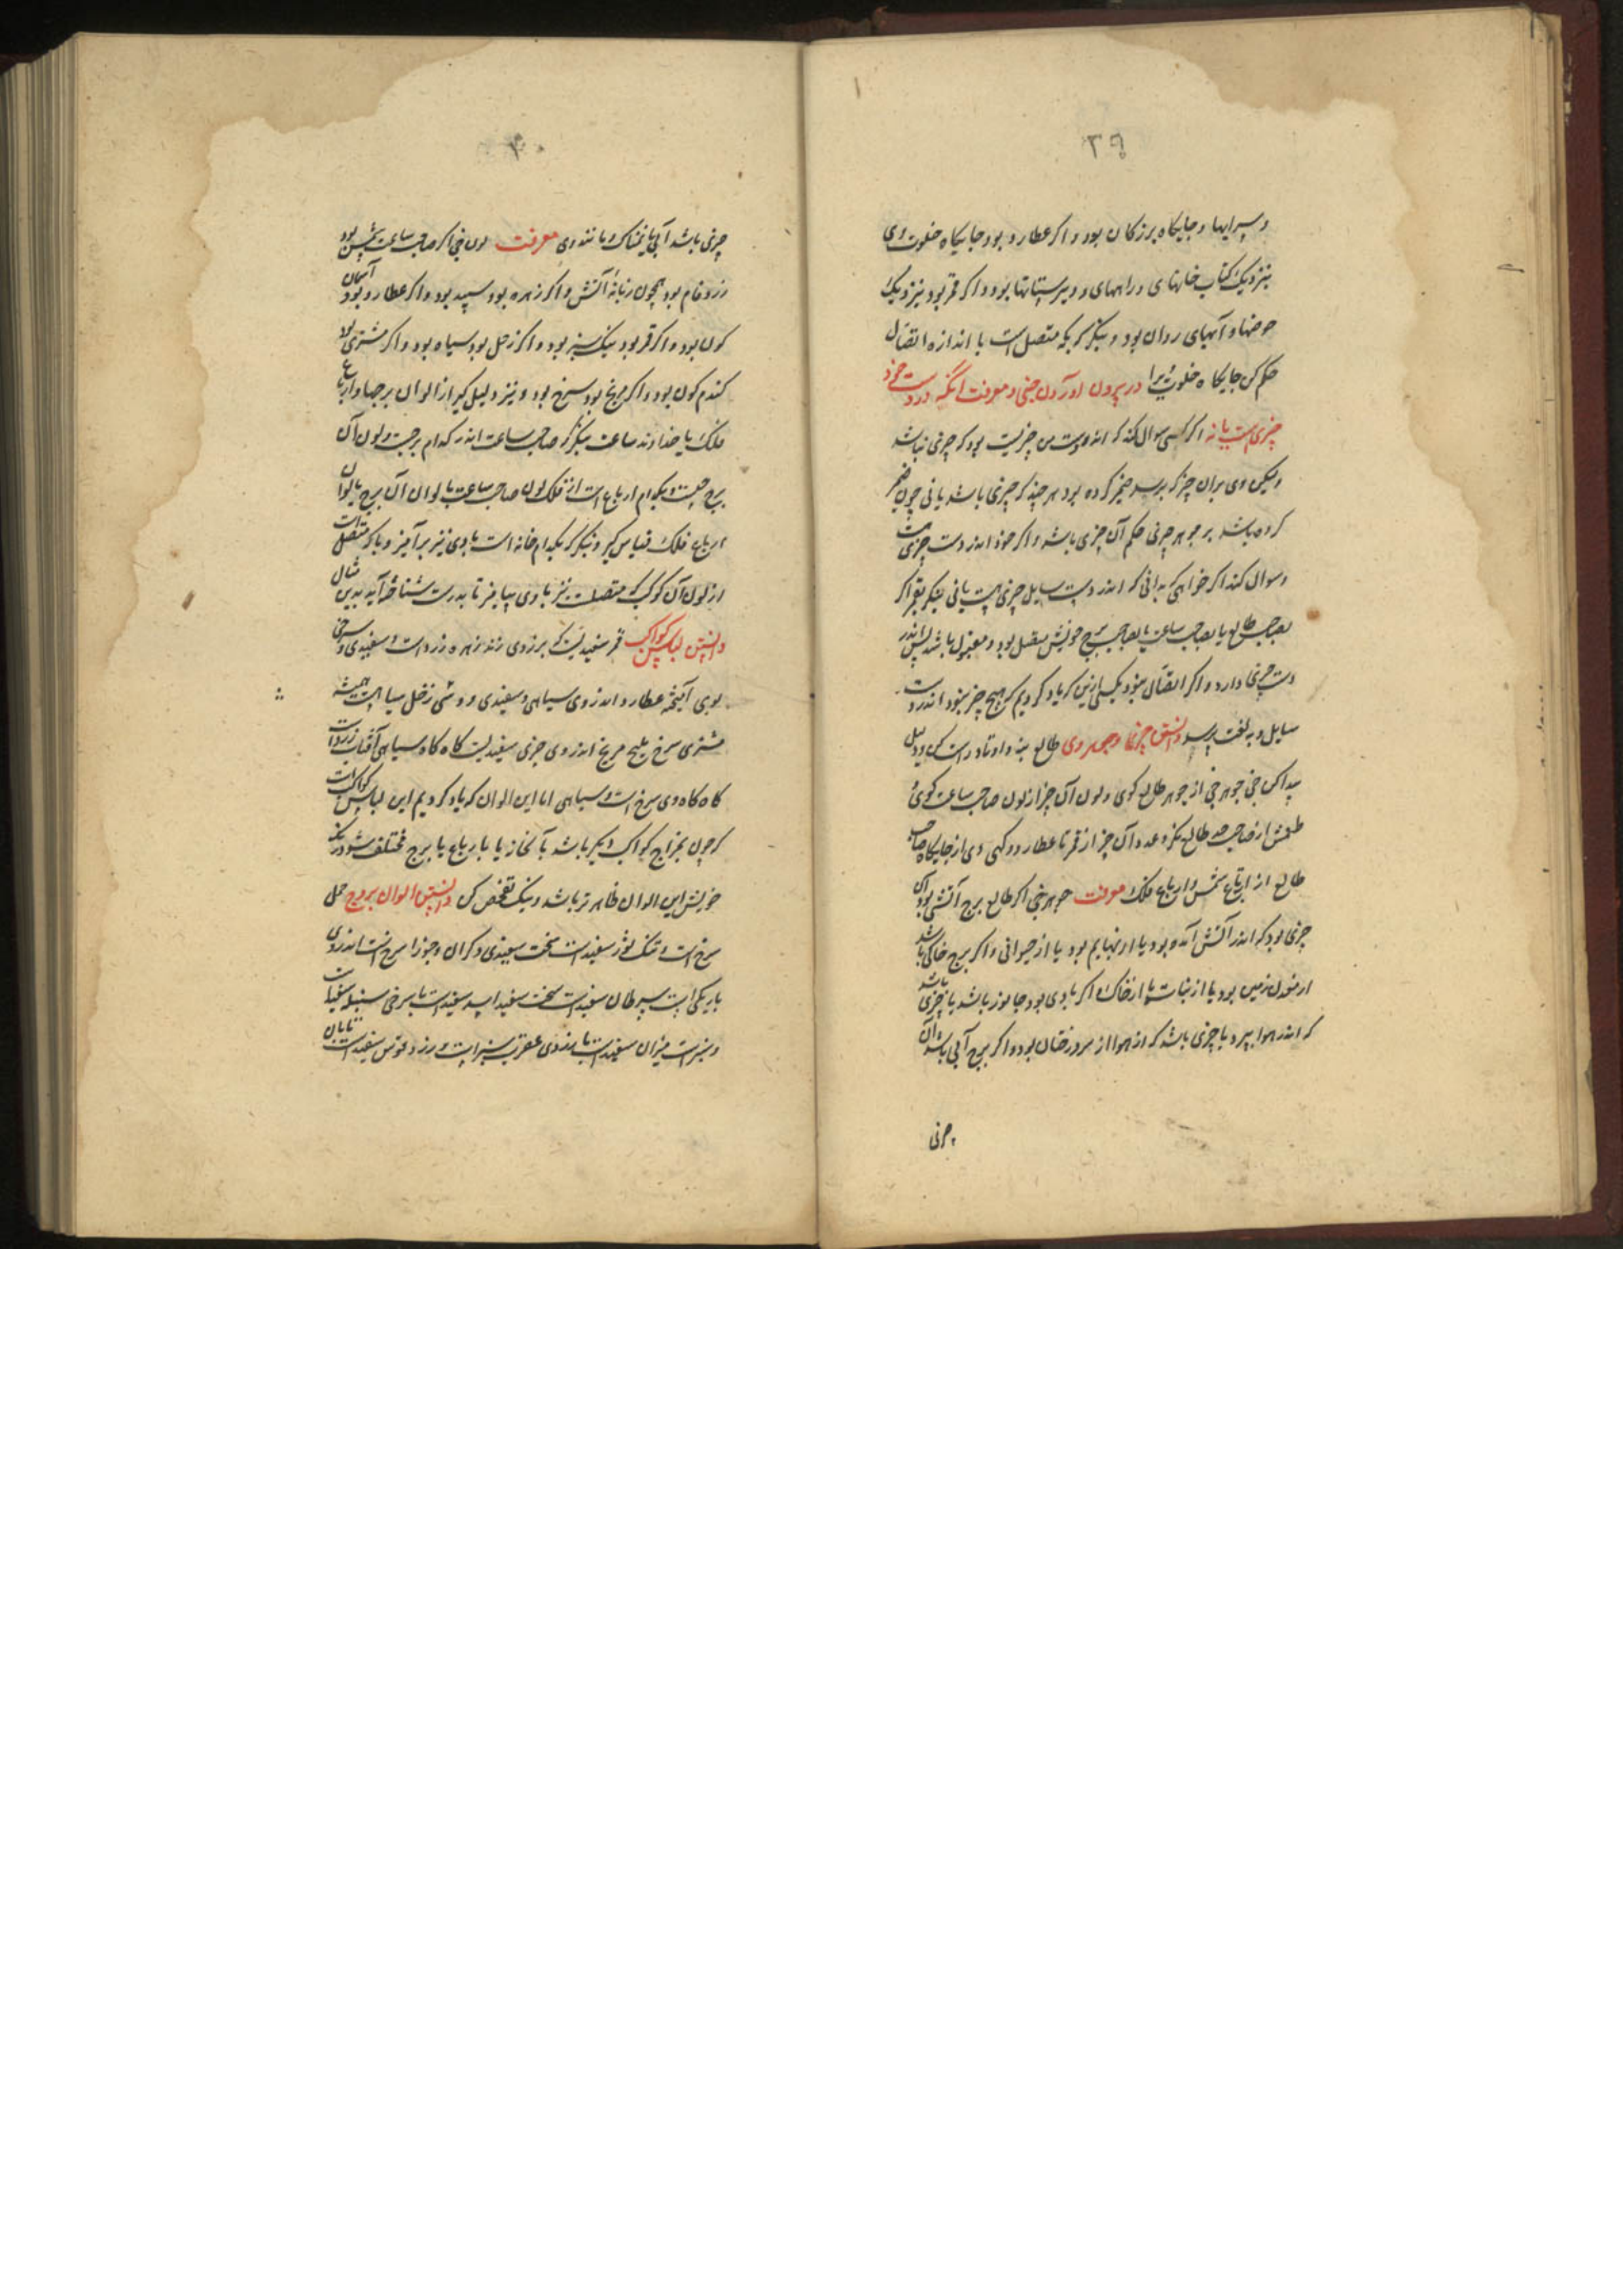 ۳۹
وسرایها و جایگاه بزرگان بود و اگر عطارد بود جایگاه خلوت وی
بنزدیک کتاب خانهای و راههای و دبیرستانها بود و اگر قمر بود بنزدیک
حوضها و آبهای روان بود و بنگر که بکه متصل است با اندازه اتصال
حکم کن جایگاه خلوت ویرا در بیرون آوردن خبی و معرفت آنکه در دست خود
چیزی هست یا نه اگر کسی سوال کند که اندر دست من چیزیست بود که چیزی نباشد
ولیکن وی بران چیز که پرسد ضمیر کرده بود هر چند که چیزی باشد یا نی چون ضمیر
کرده باشد بر جوهر چیزی حکم آن چیزی باشد و اگر خود اندر دست چیزی هست
وسوال کند اگر خواهی که بدانی که اندر دست سایل چیزی هست یا نی بنگر بقمر اگر
بصاحب طالع یا بصاحب ساعت یا بصاحب برج خویش متصل بود و مقبول باشد پس اندر
دست چیزی دارد و اگر اتصال نبود بیکی ازین که یاد کردیم هیچ چیز نبود اندر دست
سایل و به تعنت پرسد دانستن چیزها و جوهر وی طالع بنه و اوتاد راست کن و دلیل
پیدا کن خبی جوهر خبی از جوهر طالع گوی و لون آن چیز از لون صاحب ساعت گوی و
طعمش از صاحب حد طالع نگر و عدد آن چیز از قمر تا عطارد و کهی وی از جایگاه صاحب
طالع از ارتفاع شمس و ارباع فلک معرفت جوهر خبی اگر طالع برج آتشی بود آن
چیزی بود که اندر آتش آمده بود یا از بهایم بود یا از حیوانی و اگر برج خاکی باشد
از معدن زمین بود یا از نبات یا از خاک و اگر بادی بود جانور باشد یا چیزی باشد
که اندر هوا بپرد یا چیزی باشد که از هوا از سر درختان بود و اگر برج آبی باشد آن
چیزی
۴۰
چیزی باشد آبی یا نمناک و مانند وی معرفت لون خبی اگر صاحب ساعت شمس بود
زرد فام بود همچون زبانه آتش و اگر زهره بود سپید بود و اگر عطارد بود آسمان
گون بود و اگر قمر بود نیک سبز بود و اگر زحل بود سیاه بود و اگر مشتری بود
گندم گون بود و اگر مریخ بود سرخ بود و نیز دلیل گیر از الوان برجها و ارباع
فلک یا خداوند ساعت بنگر که صاحب ساعت اندر کدام برجست و لون آن
برج چیست و بکدام ارباع است از فلک لون صاحب ساعت با لوان آن برج با لوان
ارباع فلک قیاس گیر و بنگر که بکدام خانه است با وی نیز برآمیز و با که متصل است
از لون آن کوکب که متصلست نیز با وی بیامیز تا بدرست شناخته آید بدین مثال
دانستن لباس کواکب قمر سفیدیست که بزردی زند زهره زرد است و سفیدی و سرخی
بوی آمیخته عطارد اندروی سیاهی و سفیدی و وشی زحل سیاهست همیشه
مشتری سرخ ملیح مریخ اندروی چیزی سفیدیست گاه گاه سیاهی آفتاب زرداست
گاه گاه وی سرخ است و سیاهی اما این الوان که یاد کردیم این لباس کواکبست
که چون بمزاج کواکب دیگر باشد یا بخانه یا بارباع یا برج مختلف شود رنگ
خویش این الوان ظاهر تر باشد و نیک تفحص کن دانستن الوان بروج حمل
سرخ است و تنک ثور سفید است سخت سفیدی و گران و جوزا سرخ است اندروی
باریکی است سرطان سفید است سخت سفید اسد سفید است با سرخی سنبله سفید است
و سبز است میزان سفید است با زردی عقرب سبز است و زرد قوس سفید است تابان